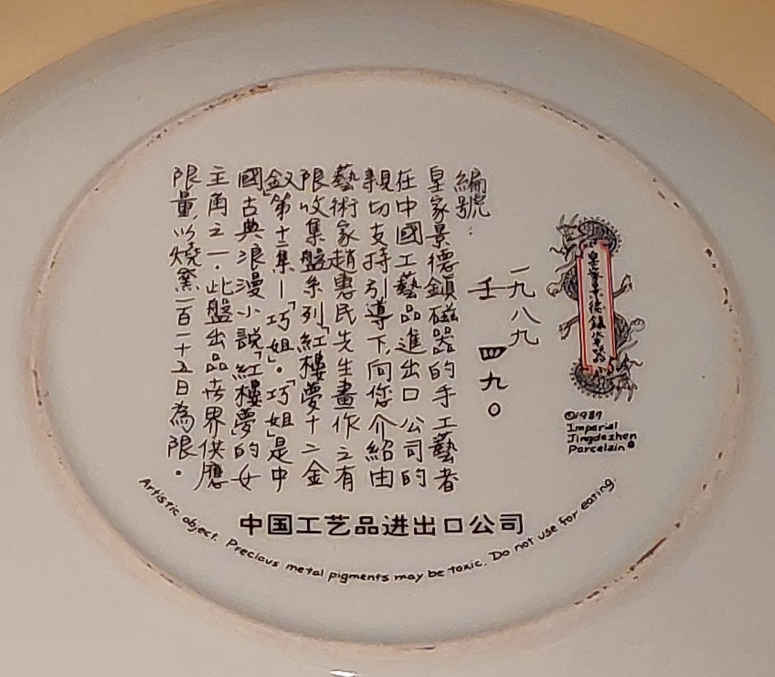 一九八九
編號:
壬 四九〇
皇家景德鎮磁器的手工藝者
在中國工藝品進出口公司的
親切支持引導下,向您介紹由
藝術家趙惠民先生畫作之有
限收集盤系列「紅樓夢十二金
釵」第十二集—「巧姐」。「巧姐」是中
國古典浪漫小說「紅樓夢」的女
主角之一.此盤出品世界供應
限量以燒窯一百二十五日為限。
©1989
Imperial
Jingdezhen
Porcelain
中国工艺品进出口公司
Artistic object. Precious metal pigments may be toxic. Do not use for eating.